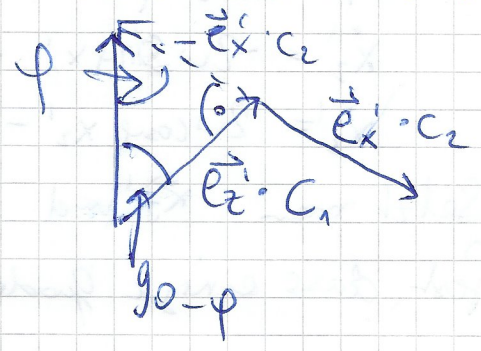 -e⃗ₓ' · c₂
φ
e⃗ₓ' · c₂
e⃗z' · c₁
90-φ